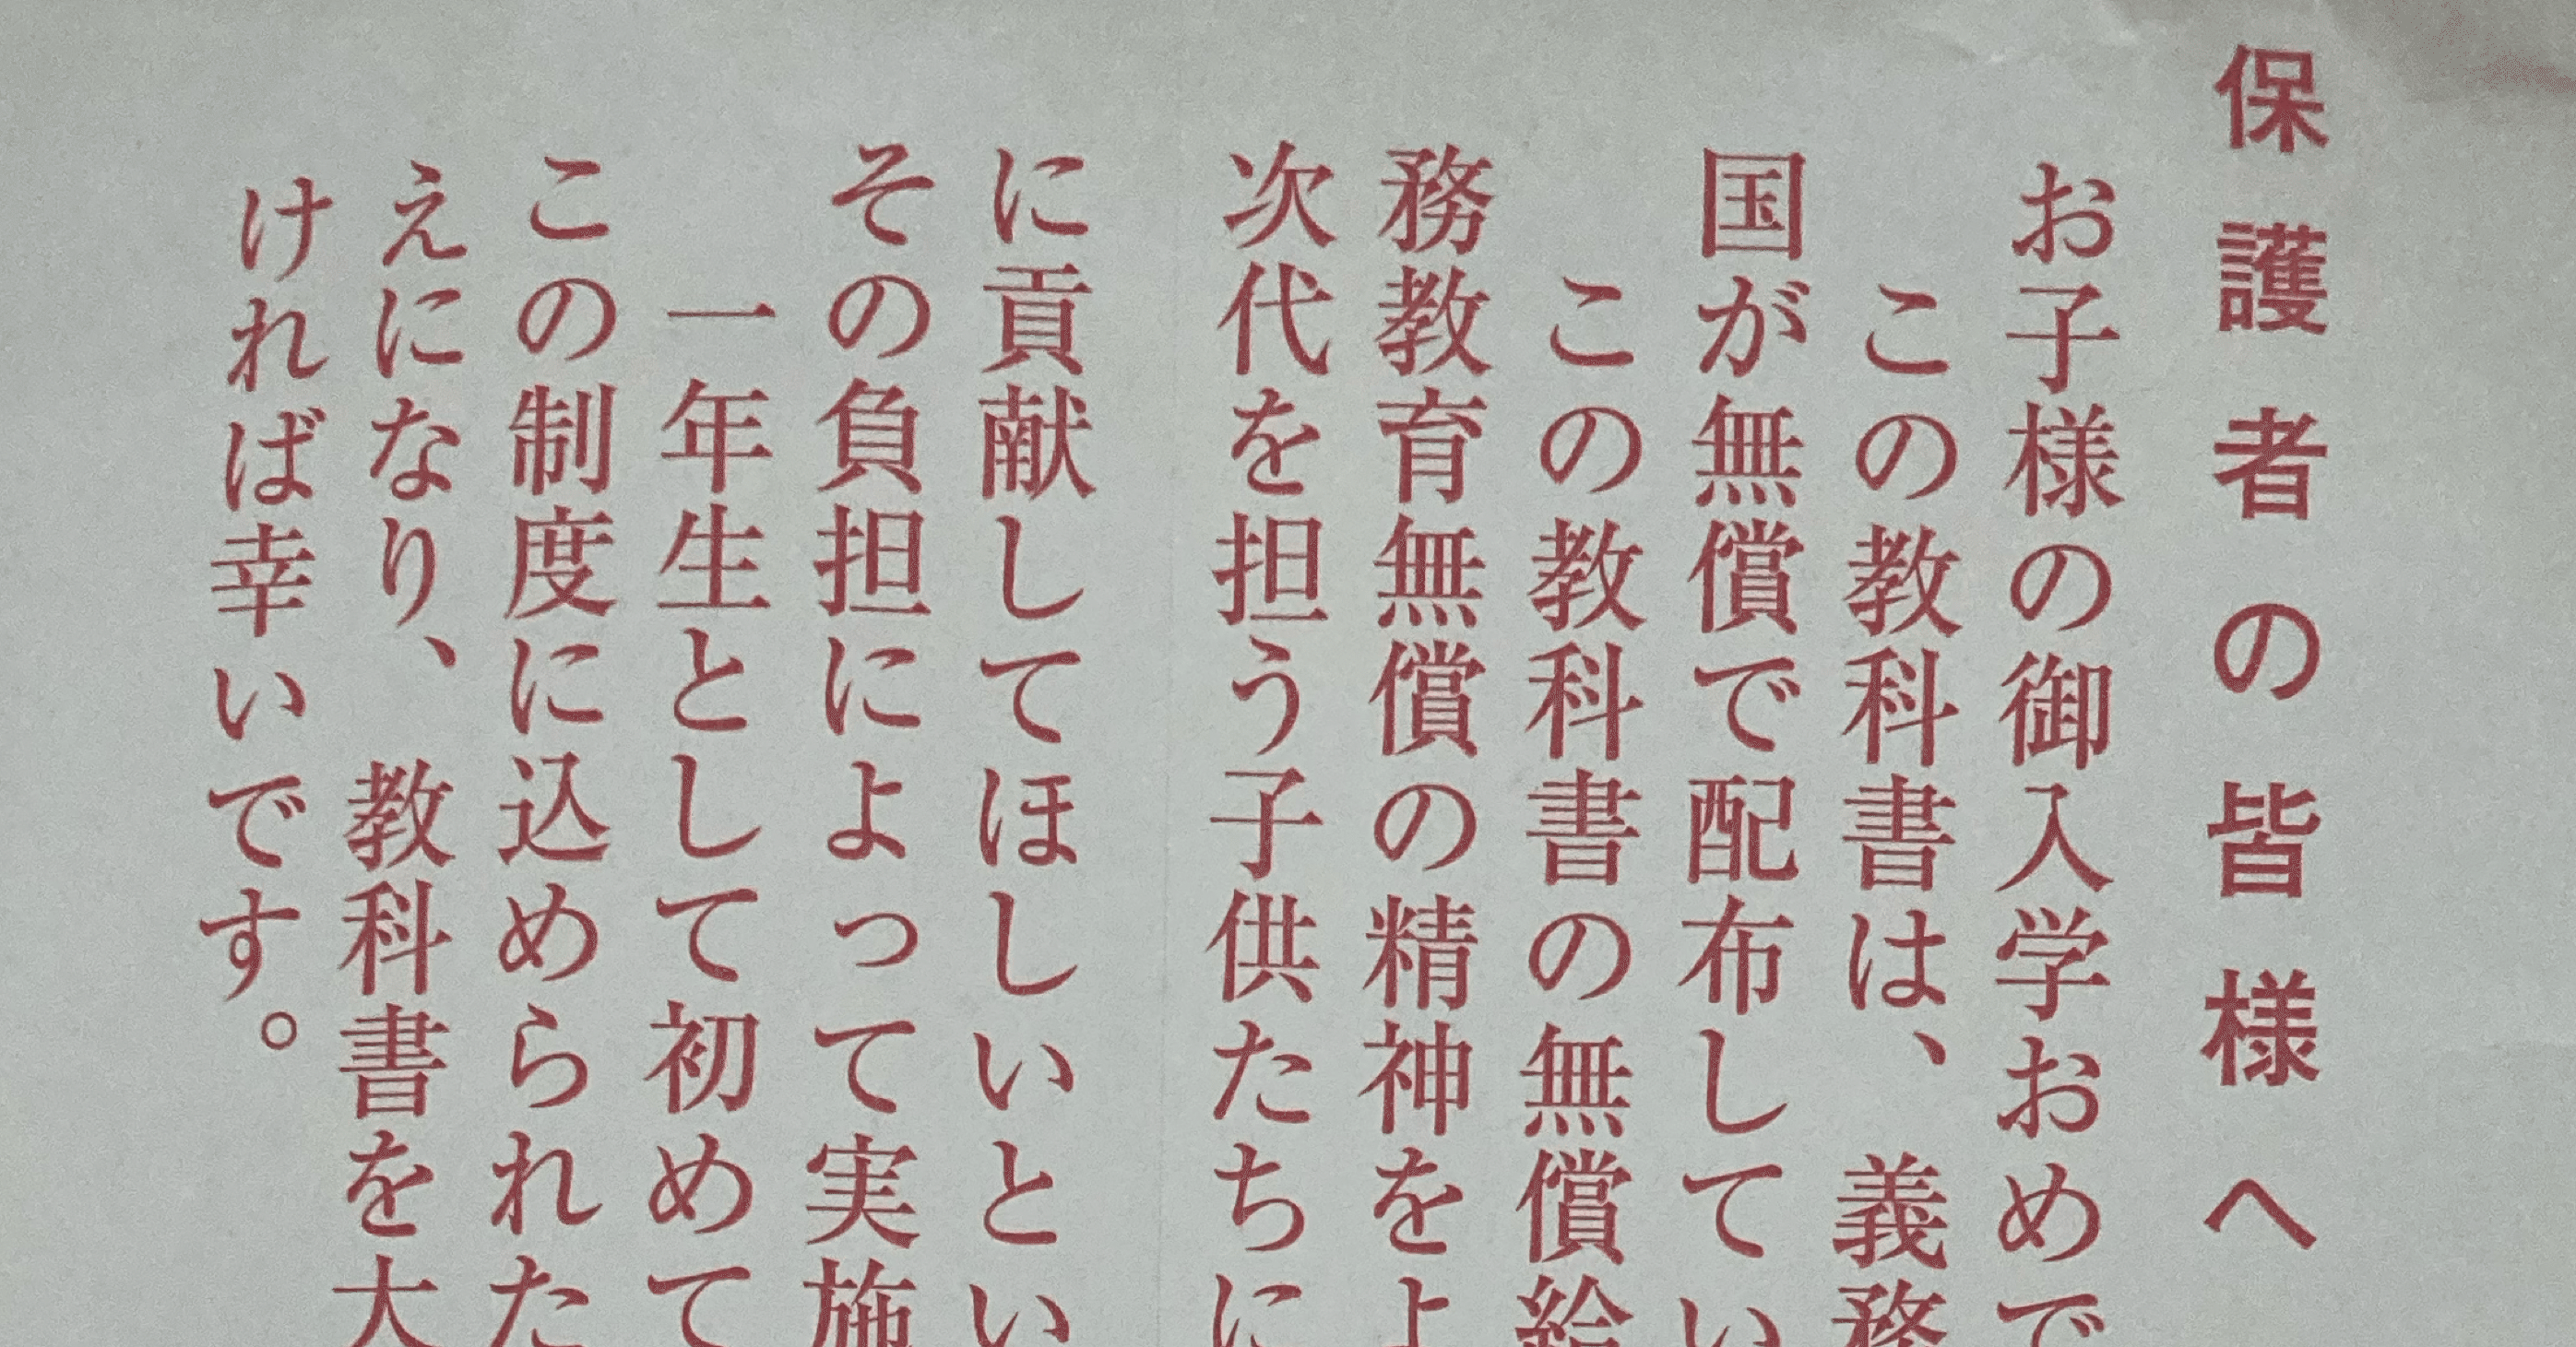 保護者の皆様へ
お子様の御入学おめで
この教科書は、義務
国が無償で配布してい
この教科書の無償給
務教育無償の精神をよ
次代を担う子供たちに
に貢献してほしいとい
その負担によって実施
一年生として初めて
この制度に込められた
えになり、教科書を大
ければ幸いです。